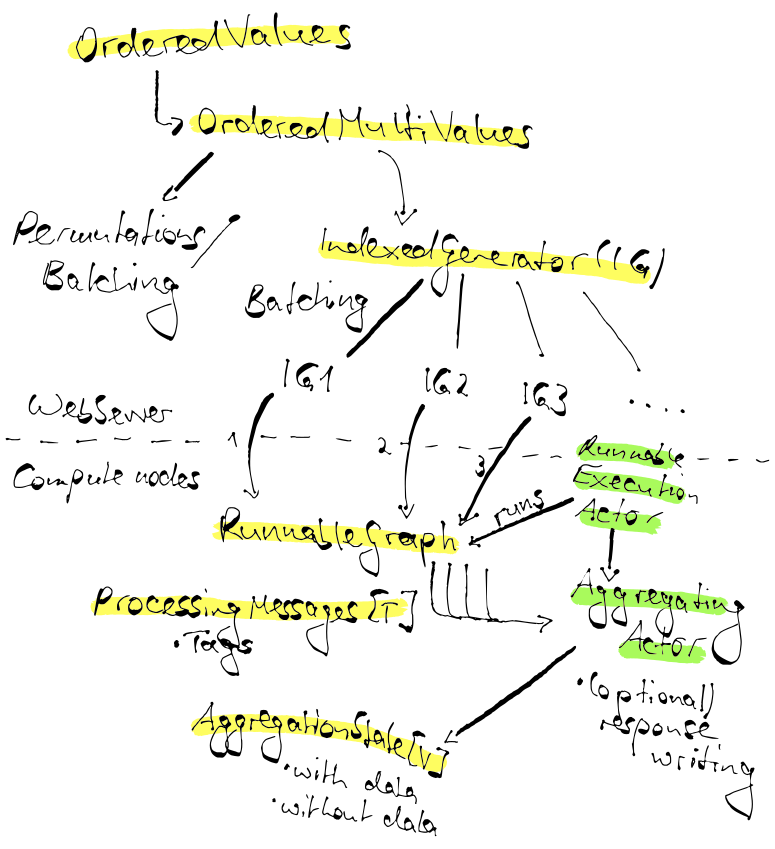 OrderedValues
OrderedMultiValues
Permutations
Batching
IndexedGenerator (IG)
Batching
IG1 IG2 IG3 ....
WebServer
1 2 3
Compute nodes
Runnable
Execution
Actor
runs
RunnableGraph
ProcessingMessages[T]
·Tags
Aggregating
Actor
·(optional)
response
writing
AggregationState[V]
·with data
·without data